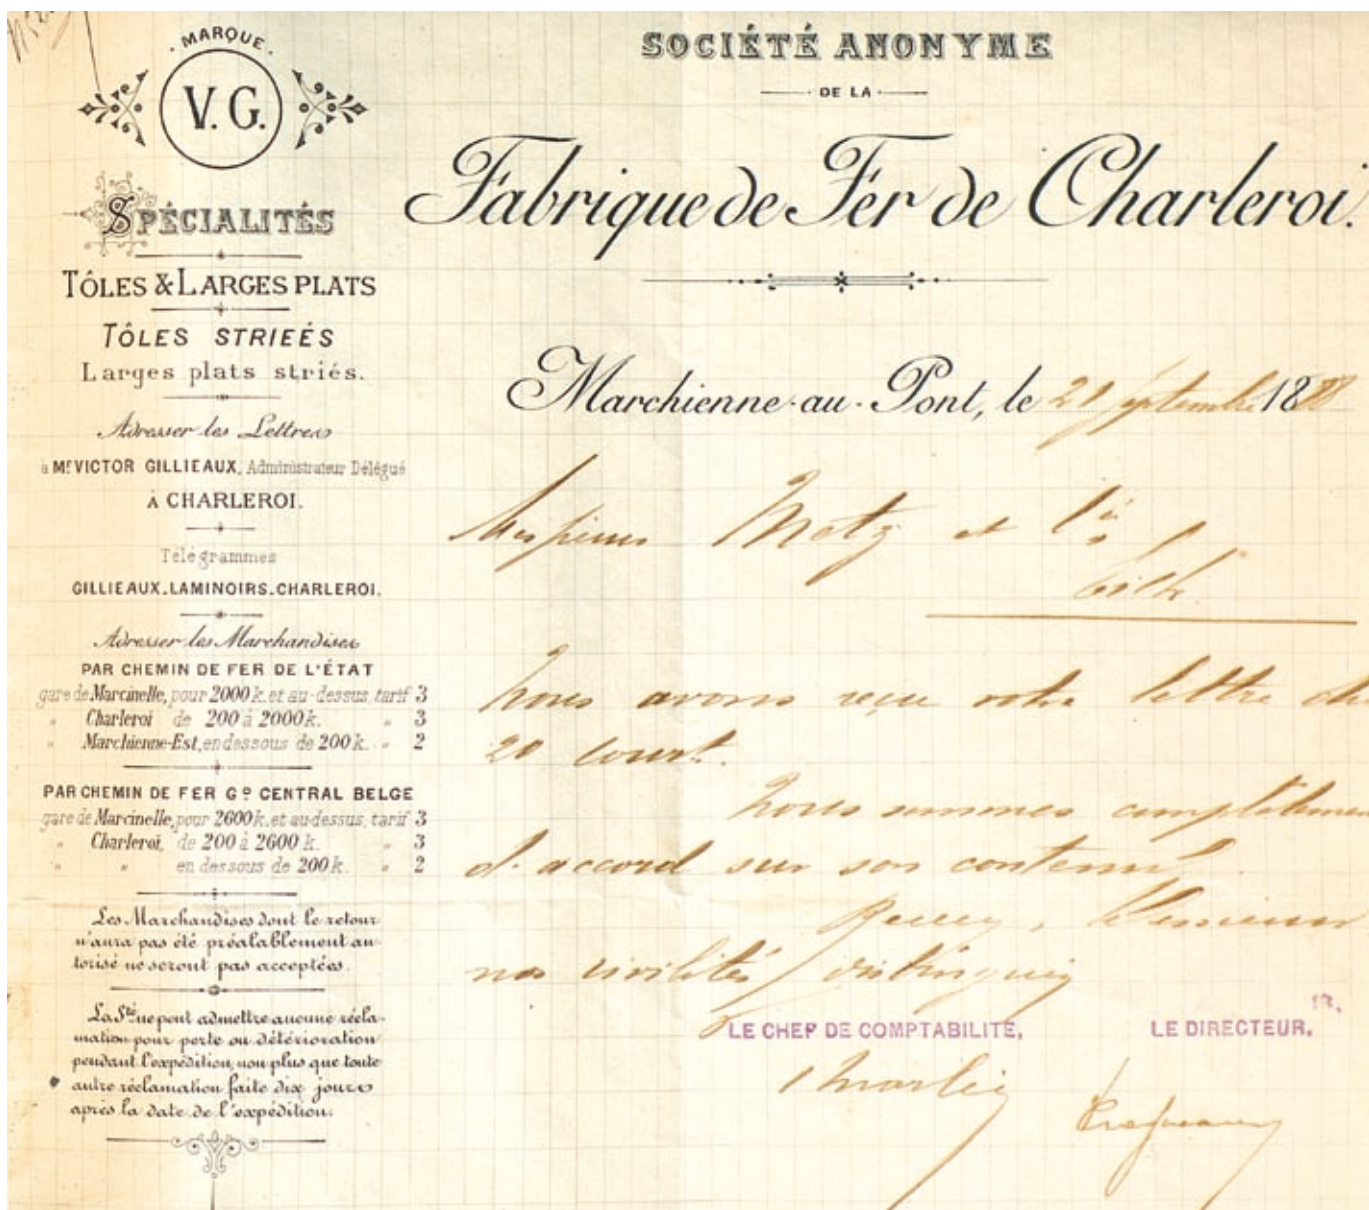 MARQUE
V. G.
SPÉCIALITÉS
TÔLES & LARGES PLATS
TÔLES STRIEÉS
Larges plats striés.
Adresser les Lettres
à Mr. VICTOR GILLIEAUX, Administrateur Délégué
À CHARLEROI.
Télégrammes
GILLIEAUX-LAMINOIRS-CHARLEROI.
Adresser les Marchandises
PAR CHEMIN DE FER DE L'ÉTAT
gare de Marcinelle, pour 2000 k. et au-dessus, tarif 3
" Charleroi de 200 à 2000 k. " 3
" Marchienne-Est, en dessous de 200 k. " 2
PAR CHEMIN DE FER Gd CENTRAL BELGE
gare de Marcinelle, pour 2600 k. et au-dessus, tarif 3
" Charleroi, de 200 à 2600 k. " 3
" " en dessous de 200 k. " 2
Les Marchandises dont le retour
n'aura pas été préalablement au-
torisé ne seront pas acceptées.
La Sté ne peut admettre aucune récla-
mation pour perte ou détérioration
pendant l'expédition, non plus que toute
autre réclamation faite dix jours
après la date de l'expédition.
SOCIÉTÉ ANONYME
DE LA
Fabrique de Fer de Charleroi.
Marchienne-au-Pont, le 21 septembre 1888
Messieurs Metz et Cie
Eich
Nous avons reçu votre lettre du
20 court.
Nous sommes complètement
d'accord sur son contenu.
Messieurs
nos civilités distinguées
LE CHEF DE COMPTABILITÉ,
LE DIRECTEUR,